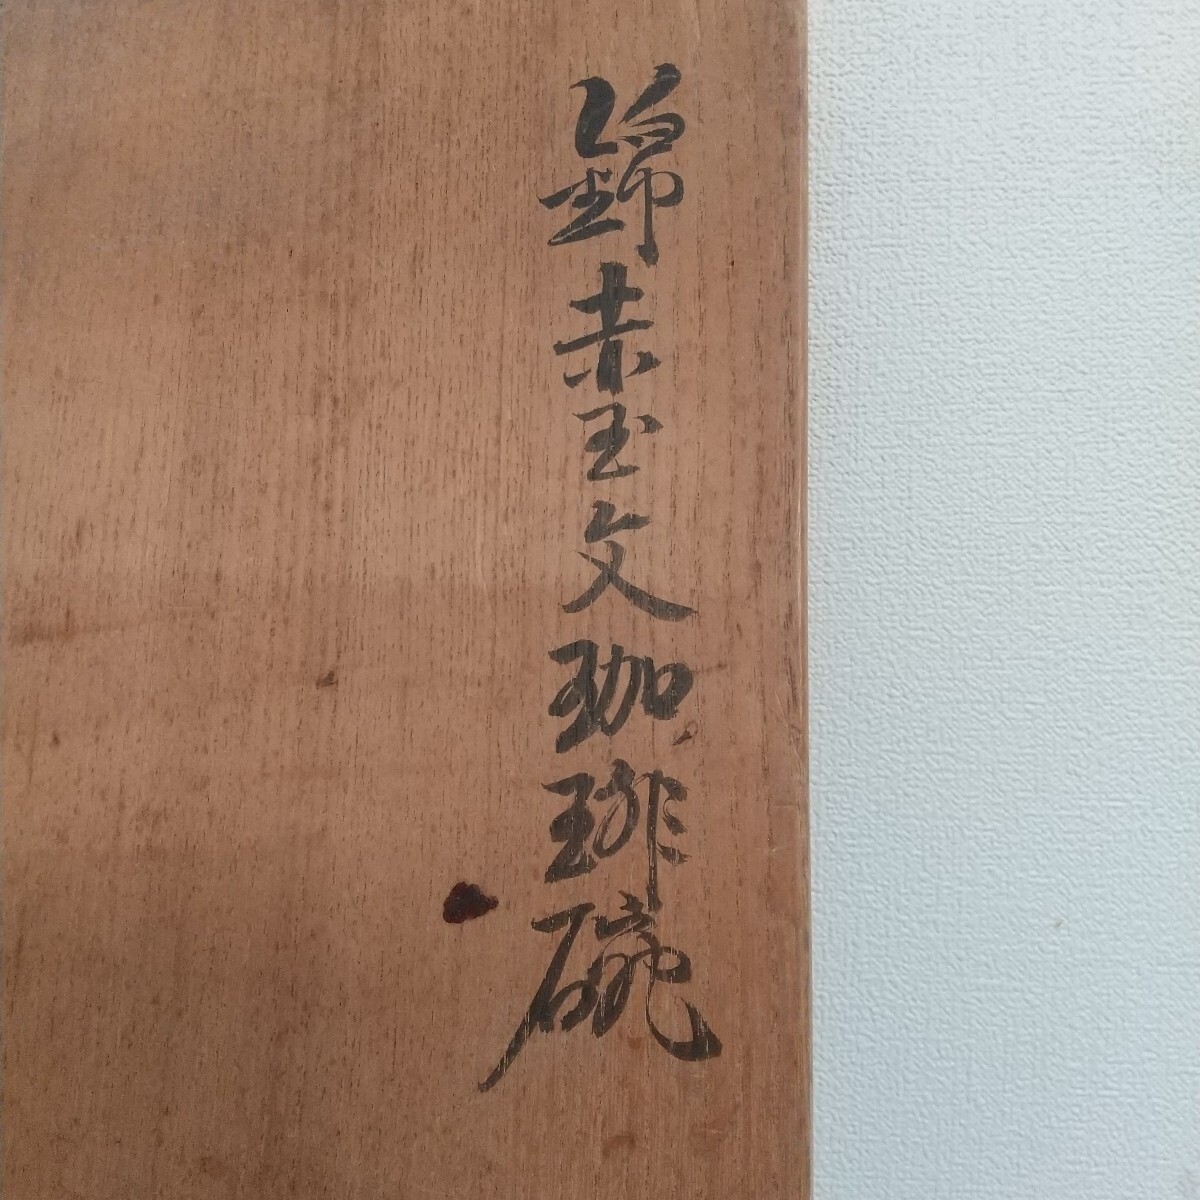 錦赤玉文珈琲碗